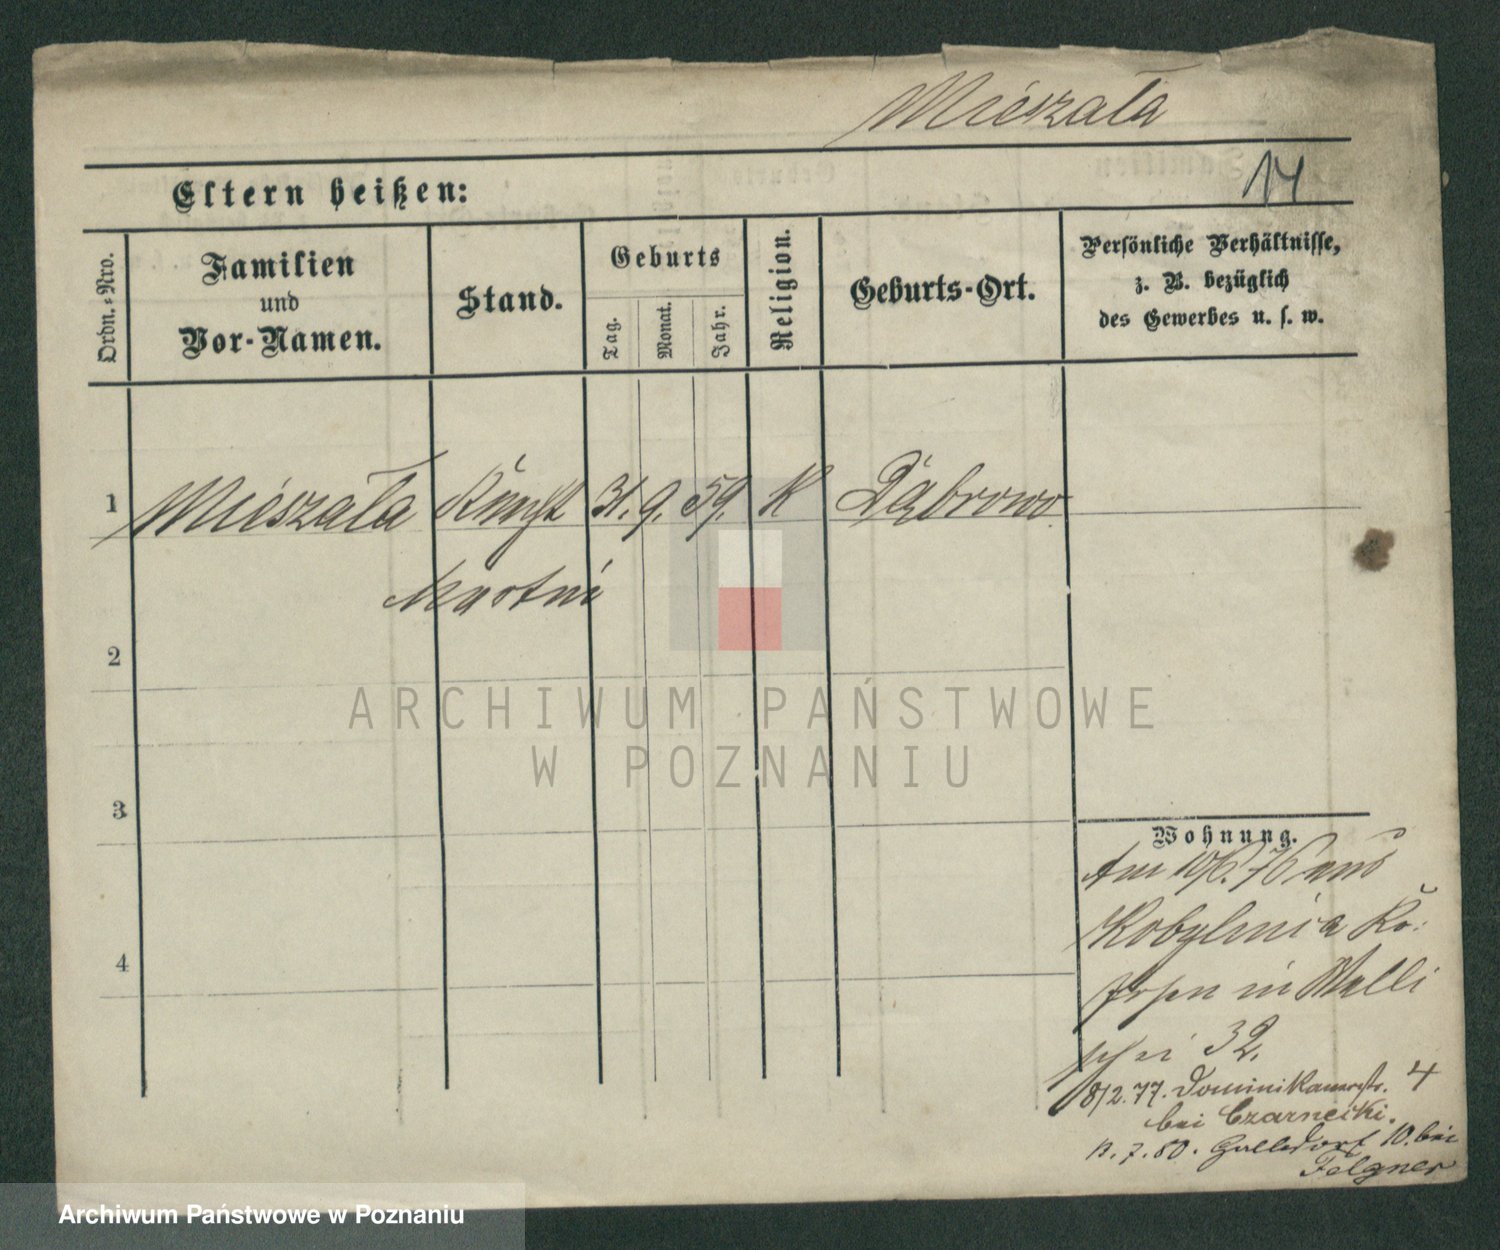 Mieszała
14
Eltern heißen:
Ordn.-Nro.
Familien
und
Vor-Namen.
Stand.
Geburts
Tag.
Monat.
Jahr.
Religion.
Geburts-Ort.
Persönliche Verhältnisse,
z. B. bezüglich
des Gewerbes u. s. w.
1 Mieszała 31. 9. 59. K Dąbrowo
Martin
2
3
4
Wohnung.
Am aus
Kobylnia Kr.
Posen in Walli
schei 32.
8/2. 77. Dominikanerstr. 4
bei Czarnecki.
7. 80. 10. bei
Felgner
ARCHIWUM PAŃSTWOWE
W POZNANIU
Archiwum Państwowe w Poznaniu